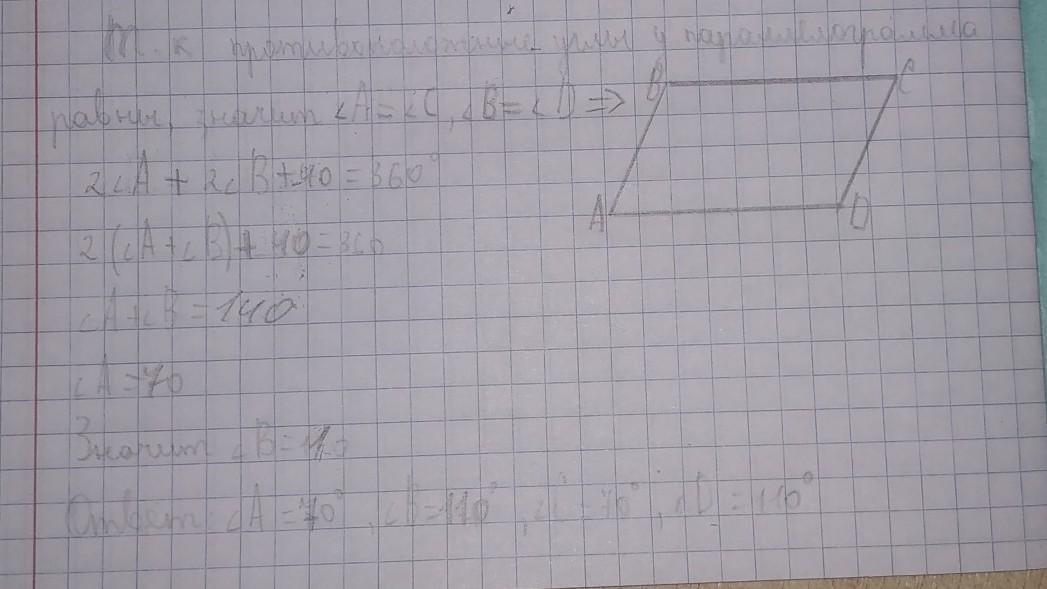 Т. к противоположные углы у параллелограмма
равны, значит ∠A=∠C, ∠B=∠D =>
B
C
2∠A + 2∠B+40=360°
A
D
2(∠A+∠B)+40=360
∠A+∠B=140°
∠A=70
Значит ∠B=110
Ответ: ∠A=70°, ∠B=110°, ∠C=70°, ∠D=110°